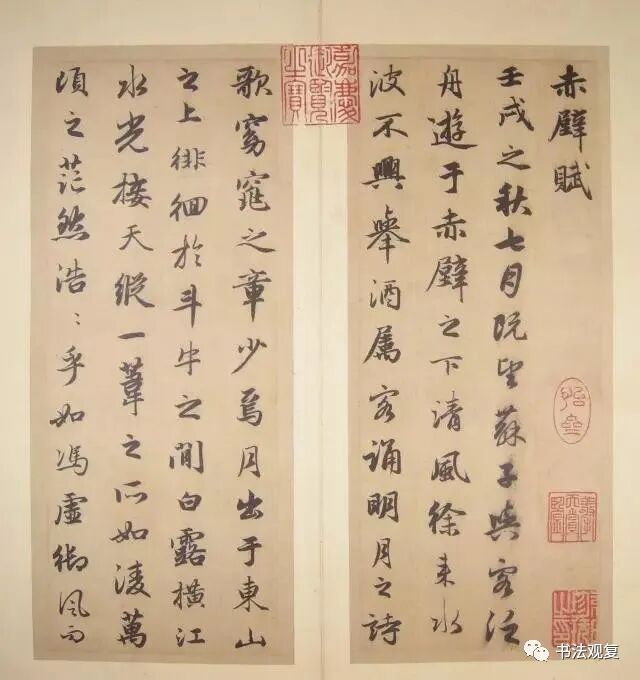 赤壁賦
壬戌之秋七月既望蘇子與客泛
舟遊于赤壁之下清風徐来水
波不興舉酒属客誦明月之詩
歌窈窕之章少焉月出于東山
之上徘徊於斗牛之間白露横江
水光接天縱一葦之所如凌萬
頃之茫然浩〻乎如馮虚御風而
嘉慶
御覽
之寶
书法观复